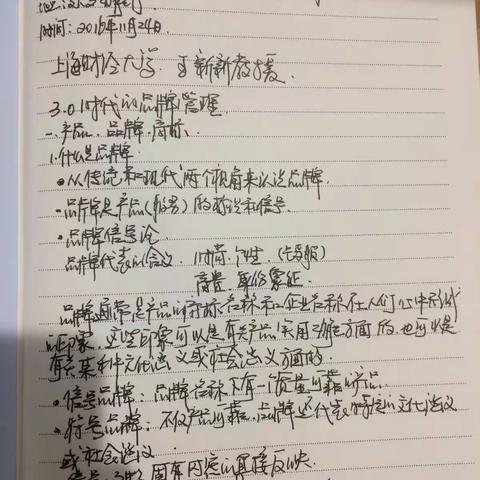 时间：2016年11月24日.
上海财经大学 王新新教授.
3.0时代的品牌管理.
一.产品.品牌.商标.
1.什么是品牌
•从传统和现代两个视角来认识品牌.
-品牌是产品(服务)的标识和信号.
•品牌信号论
品牌代表的含义. 时尚.个性.
高贵.身份象征.
品牌通常是产品的商标名称和企业名称在人们心中形成
的印象.这些印象可以是有关产品实用功能方面的.也可以是
有关某种文化意义或社会意义方面的.
•信号品牌：品牌名称下有一质量可靠的产品.
•符号品牌：不仅产品可靠.品牌还代表特定的文化意义
或社会意义
固有内容的直接反映.